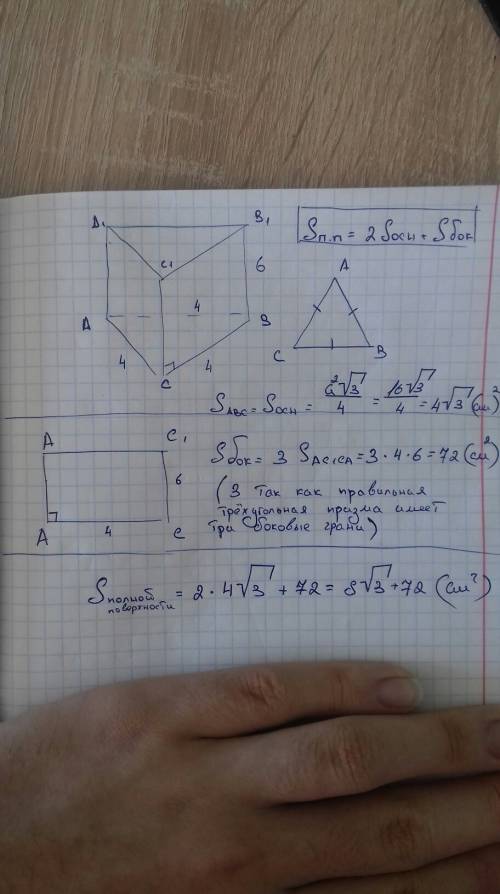 A₁ B₁
C₁
6
A 4 B
4 4
C
Sп.п = 2Sосн + Sбок
A
C B
S_ABC = Sосн = a²√3/4 = 16√3/4 = 4√3 (см²)
A C₁
6
A 4 C
Sбок = 3 S_AC₁CA = 3·4·6 = 72 (см²)
(3 так как правильная
трёхугольная призма имеет
три боковые грани)
Sполной поверхности = 2·4√3 + 72 = 8√3 + 72 (см²)